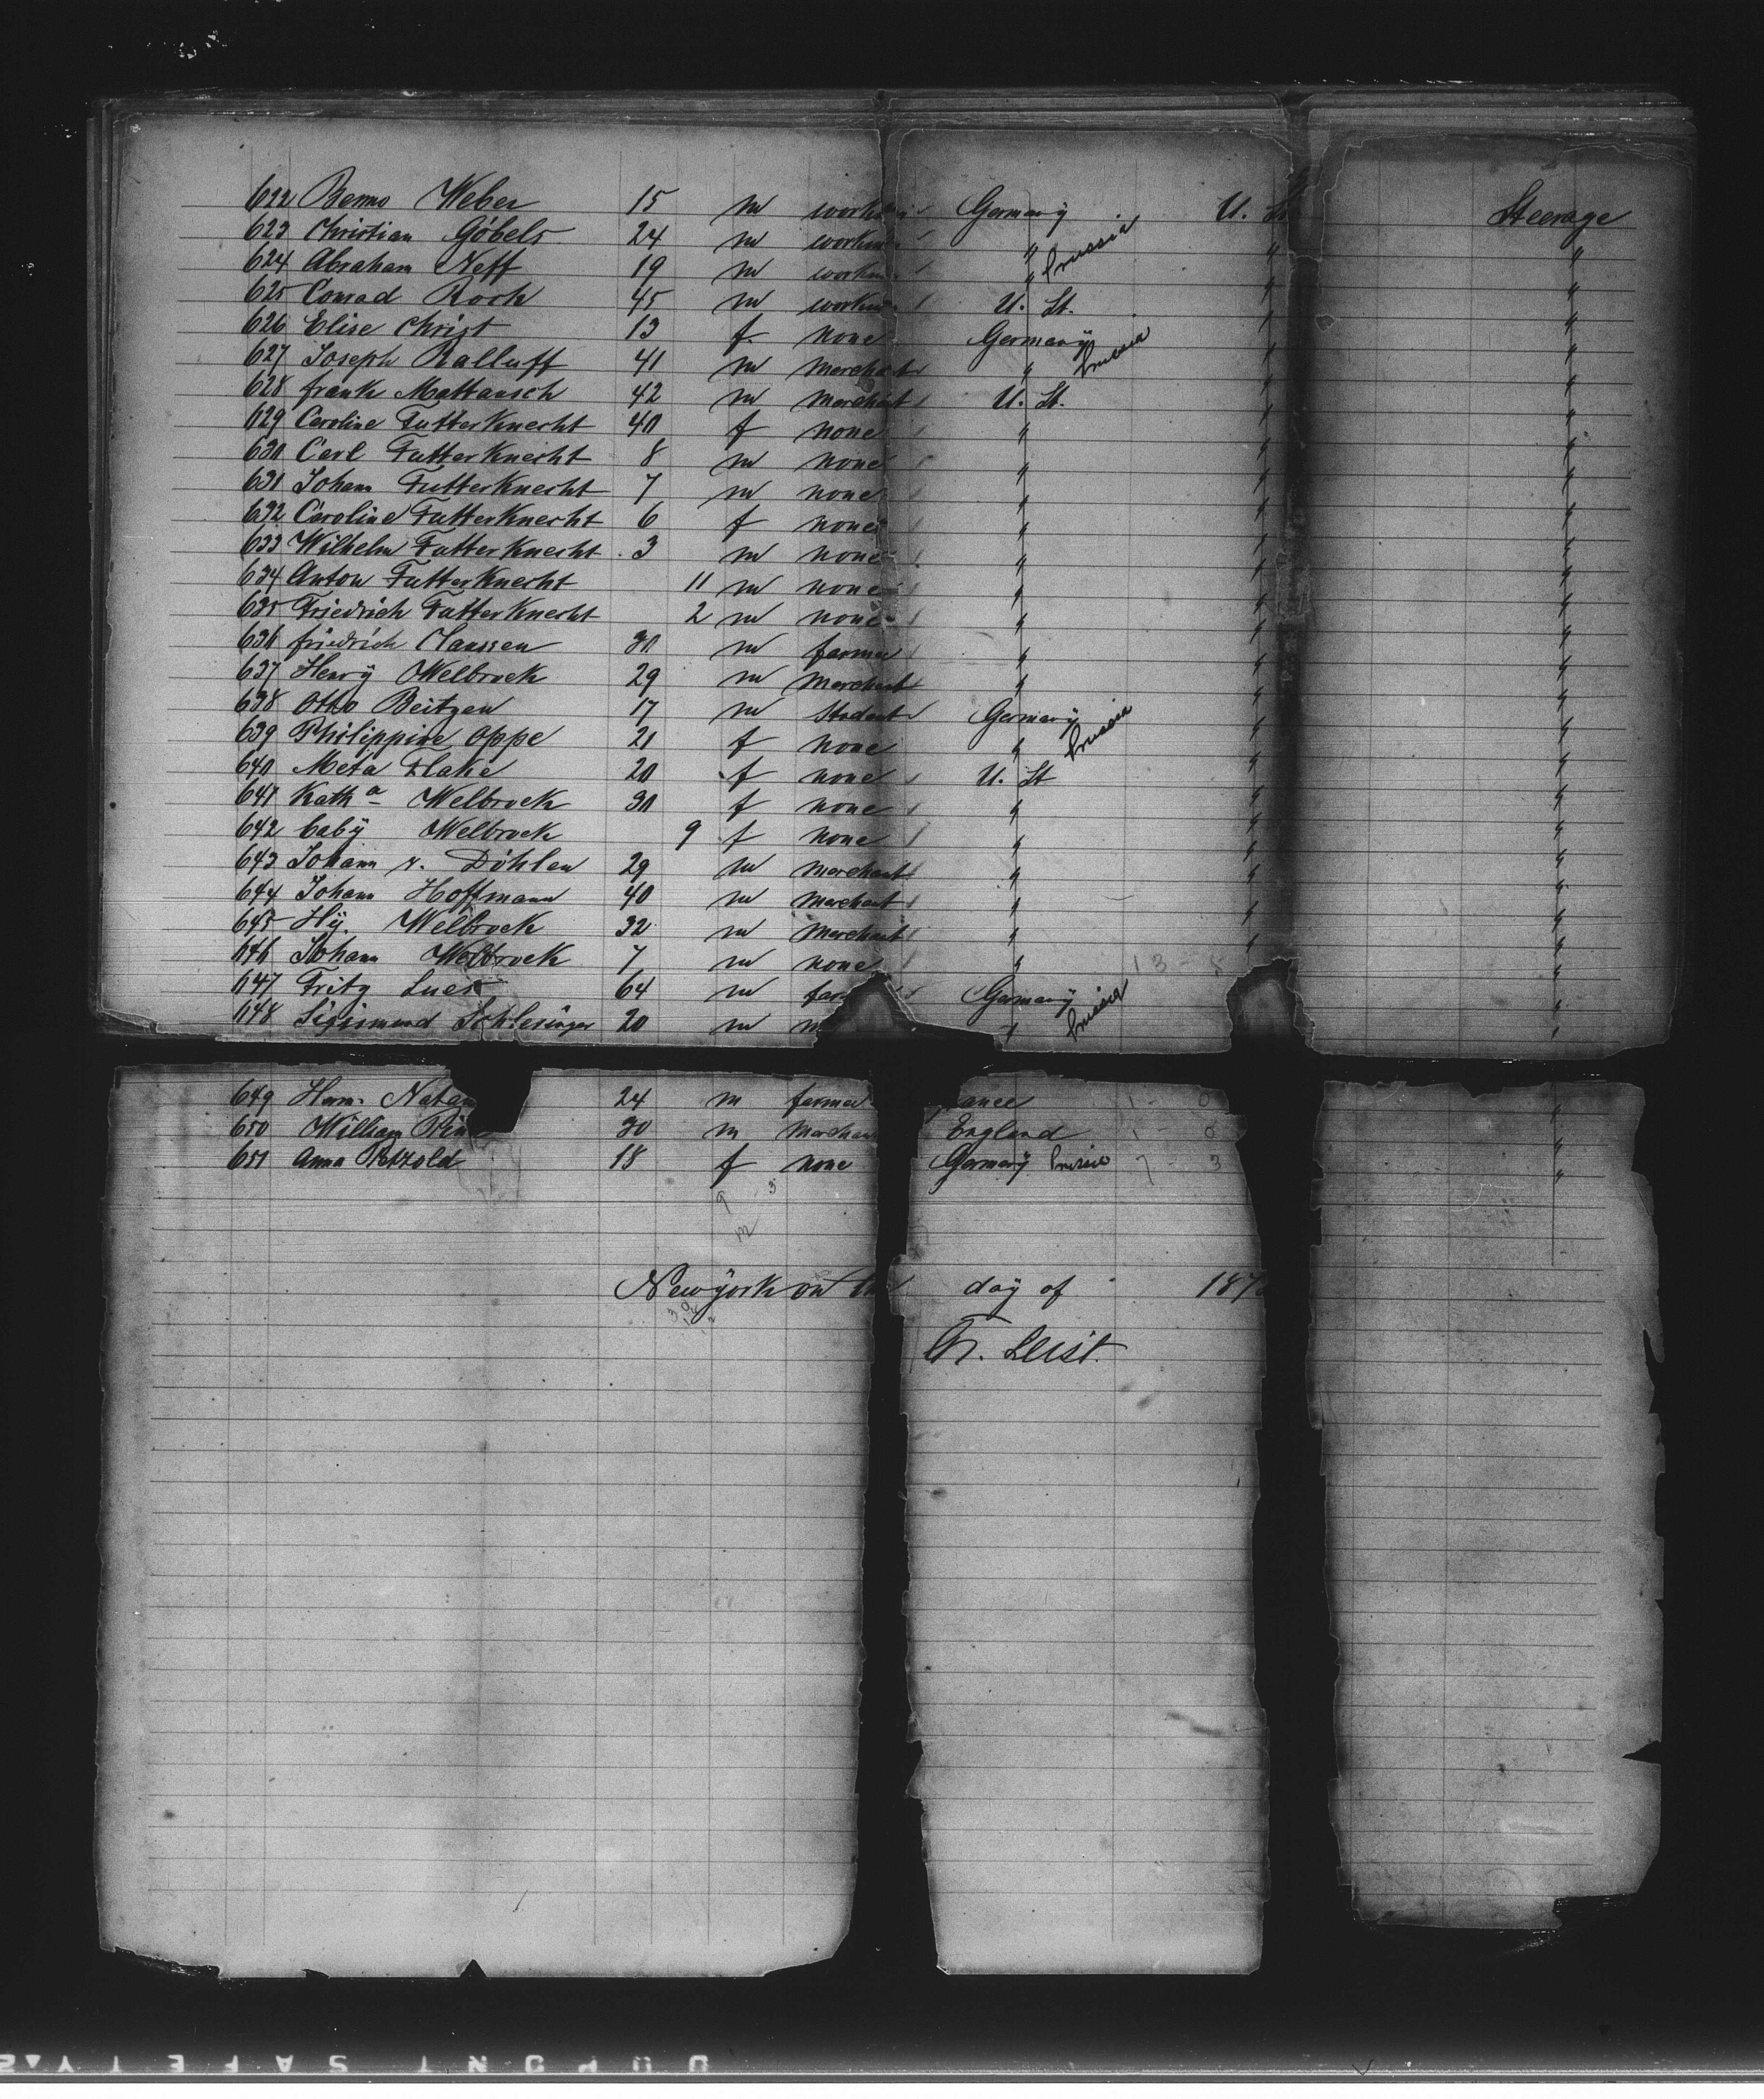 622 Benno Weber 15 m work Germany U. St Steerage
623 Christian Göbels 24 m workm " " "
624 Abraham Neff 19 m workm " Prussia " "
625 Conrad Roch 45 m workm U. St. " "
626 Elise Christ 13 f. none Germany " "
627 Joseph Ralluff 41 m merchant " Prussia " "
628 Frank Mattausch 42 m merchant U. St. " "
629 Caroline Futterknecht 40 f none " " "
630 Carl Futterknecht 8 m none " " "
631 Johann Futterknecht 7 m none " " "
632 Caroline Futterknecht 6 f none " " "
633 Wilhelm Futterknecht 3 m none " " "
634 Anton Futterknecht 11 m none " " "
635 Friedrich Futterknecht 2 m none " " "
636 Friedrich Claussen 30 m farmer " " "
637 Henry Welbrock 29 m merchant " " "
638 Otto Beitzen 17 m student Germany " "
639 Philippine Oppe 21 f none " Prussia " "
640 Meta Flake 20 f none U. St " "
641 Katha Welbrock 30 f none " " "
642 baby Welbrock 9 f none " " "
643 Johann v. Döhlen 29 m merchant " " "
644 Johann Hoffmann 40 m merchant " " "
645 Hy. Welbrock 32 m merchant " " "
646 Johann Welbrock 7 m none " " "
647 Fritz Lues 64 m far Germany "
648 Sigismund Schlesinger 20 m m " Prussia "
649 Herm. Natan 24 m farmer ance 1 - 0 "
650 William 30 m merchan England 1 0 "
651 Anna Petzold 18 f none Germany Prussia 7 - 3 "
Newyork on the day of 187
Leist.
DUPONT SAFETY